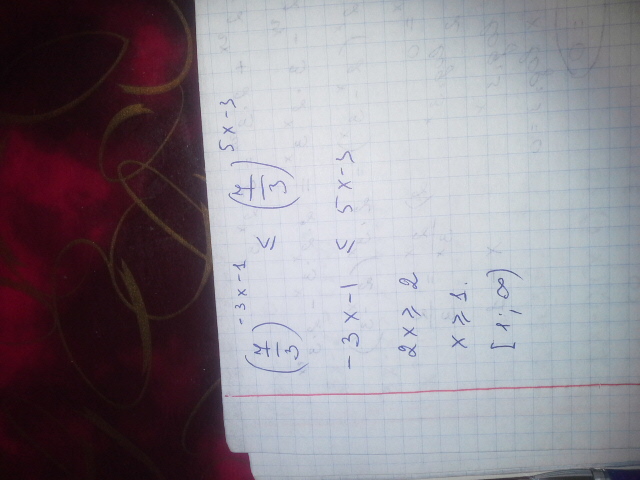 (7/3)^(-3x-1) ≤ (7/3)^(5x-3)
-3x-1 ≤ 5x-3
2x ⩾ 2
x ⩾ 1.
[1; ∞)